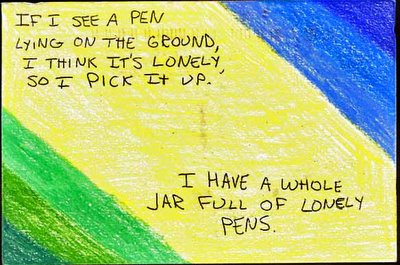 IF I SEE A PEN
LYING ON THE GROUND,
I THINK IT'S LONELY,
SO I PICK IT UP.
I HAVE A WHOLE
JAR FULL OF LONELY
PENS.